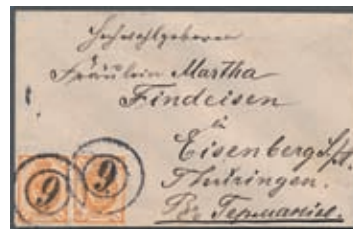 Hochwohlgeboren
Fräulein Martha
Findeisen
in
Eisenberg S/A.
Thüringen.
Германiю.
9 9